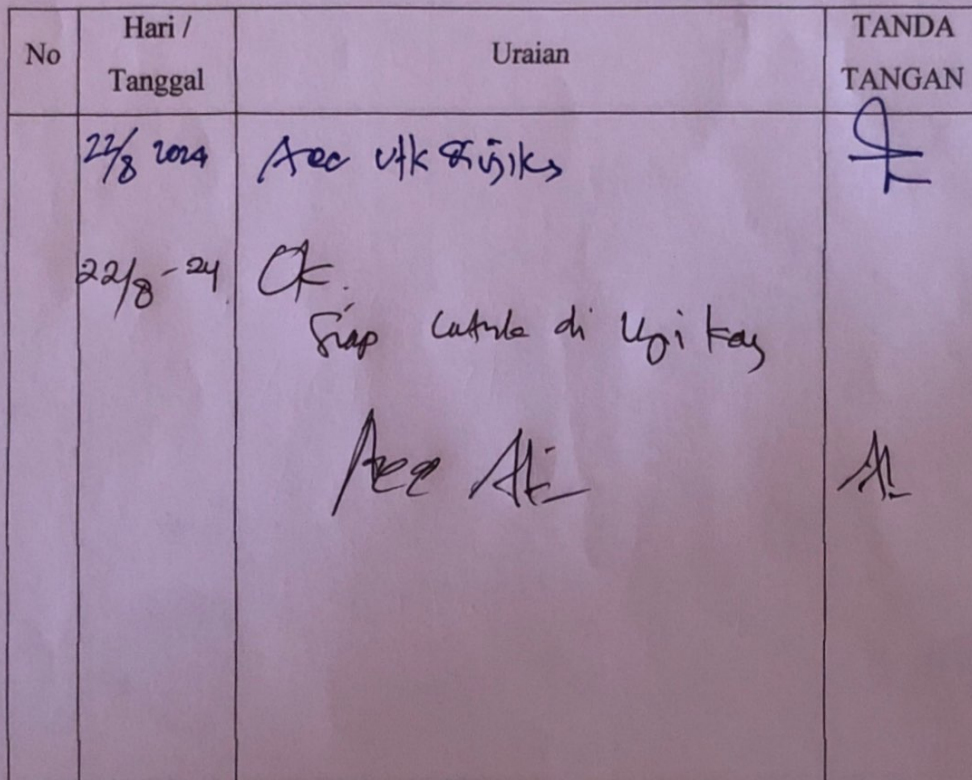 No
Hari /
Tanggal
Uraian
TANDA
TANGAN
22/8 2024 Acc utk diujikan
22/8-24 Ok.
Siap untuk di Ujikan
Acc